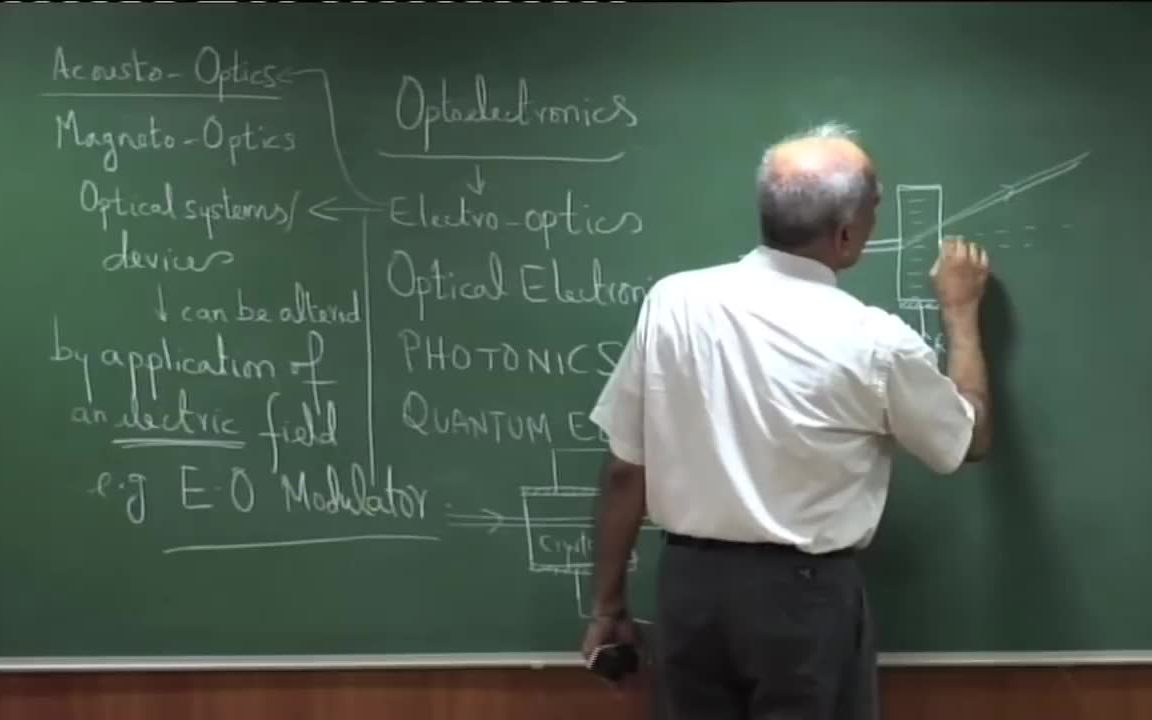 Acousto-Optics
Magneto-Optics
Optical systems/
devices
↓ can be altered
by application of
an electric field
e.g E-O Modulator
Optoelectronics
↓
Electro-optics
Optical Electroni
PHOTONICS
QUANTUM E